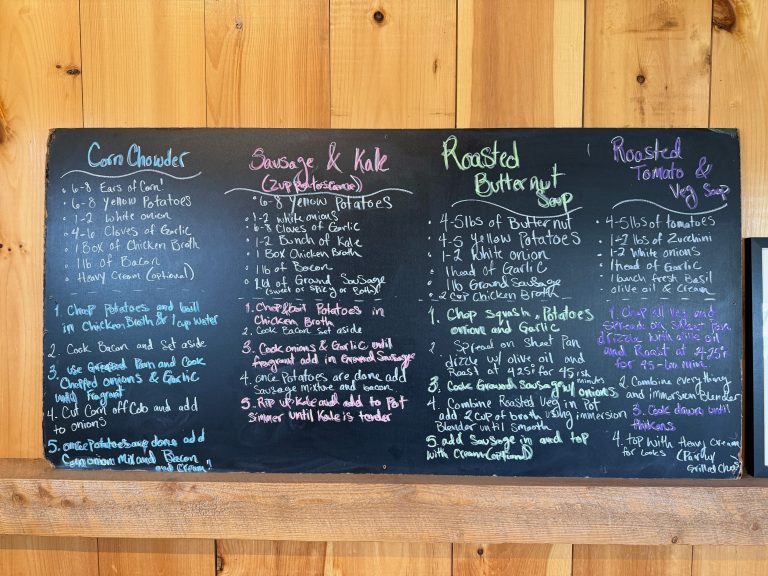 Corn Chowder
• 6-8 Ears of Corn!
• 6-8 Yellow Potatoes
• 1-2 White onion
• 4-6 Cloves of Garlic
• 1 Box of Chicken Broth
• 1 lb of Bacon
• Heavy Cream (optional)
1 Chop Potatoes and boil
in Chicken Broth & 1 cup Water
2. Cook Bacon and Set aside
3. use Greased Pan and Cook
Chopped onions & Garlic
until fragrant
4. Cut Corn off Cob and add
to onions
5. once Potatoes are done add
Corn onion Mix and Bacon
and Cream!
Sausage & Kale
(Zuppa
• 6-8 Yellow Potatoes
• 1-2 white onions
• 6-8 Claves of Garlic
• 1-2 Bunch of Kale
• 1 Box Chicken Broth
• 1 lb of Bacon
• 1 Ld of Ground Sausage
(sweet or spicy or Both)
1. Chop & boil Potatoes in
Chicken Broth
2. Cook Bacon Set aside
3. Cook onions & Garlic until
fragrant add in Ground Sausage
4. once Potatoes are done add
Sausage mixture and bacon
5. Rip up Kale and add to Pot
Simmer until Kale is tender
Roasted
Butternut
Soup
• 4-5 lbs of Butternut
• 4-5 Yellow Potatoes
• 1-2 White onion
• 1 head of Garlic
• 1 lb Ground Sausage
• 2 cup Chicken Broth
1. Chop squash, Potatoes
onion and Garlic
2. Spread on Sheet Pan
drizzle w/ olive oil and
Roast at 425° for 45 ish
minutes
3. Cook Ground Sausage w/ onions
4. Combine Roasted Veg in Pot
add 2 cup of broth using immersion
Blender until Smooth
5. add Sausage in and top
with Cream (optional)
Roasted
Tomato &
Veg Soup
• 4-5 lbs of tomatoes
• 1-2 lbs of Zucchini
• 1-2 White onions
• 1 head of Garlic
• 1 bunch fresh Basil
olive oil & Cream
1 Chop all veg and
Spread on Sheet Pan
drizzle with olive oil
and Roast at 425°
for 45-60 min.
2 Combine everything
and immersion Blender
3. Cook down until
thickens
4. top with Heavy Cream
for Looks
Grilled